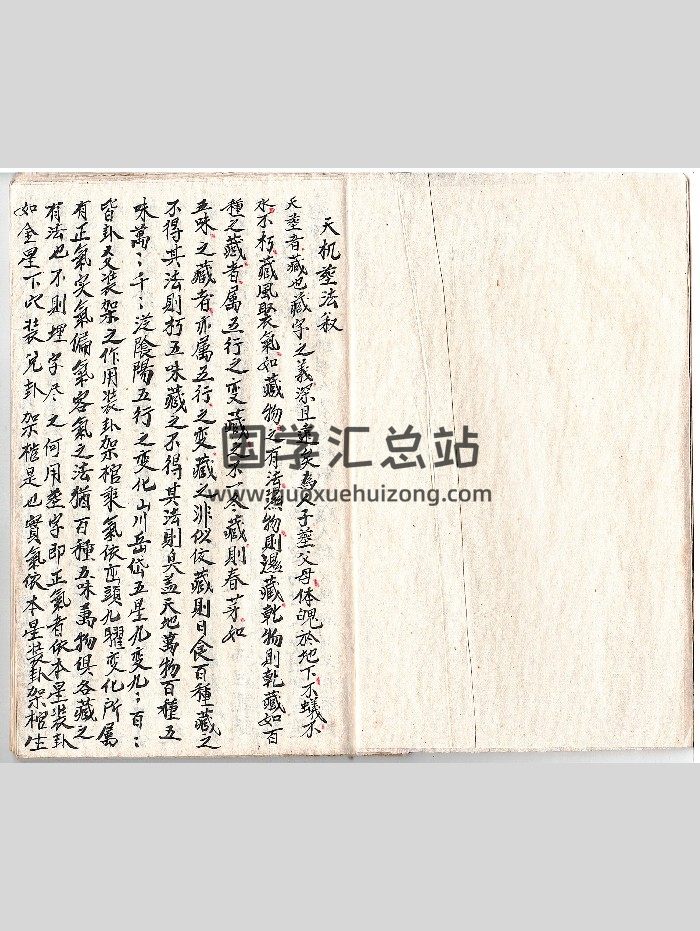 天机塟法叙
天塟者藏也藏字之義深且遠矣為人子塟父母体魄於地下不蟻不
水不朽藏風聚氣如藏物之有法濕物則濕藏乾物則乾藏如百
種之藏者属五行之变藏之不一冬藏則春芽如
五味之藏者亦属五行之变藏之非似仗藏則日食百種藏之
不得其法則朽五味藏之不得其法則臭盖天地萬物百種五
味萬〻千〻從陰陽五行之變化山川岳岱五星九变九〻百〻
皆卦爻装架之作用装卦架棺乘氣依峦頭九曜变化所属
有正氣突氣偏氣客氣之法猶百種五味萬物俱各藏之
有法也不則埋字尽之何用塟字即正氣者依本星装卦
如金星下此装兑卦架棺是也賓氣依本星装卦架棺生
国学汇总站
www.guoxuehuizong.com